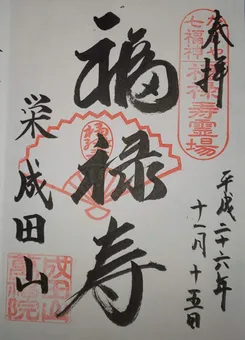 奉拝
七福神
福禄寿霊場
平成二十六年
十一月十五日
福禄寿
福禄寿
栄 成田山
成田山
萬福院